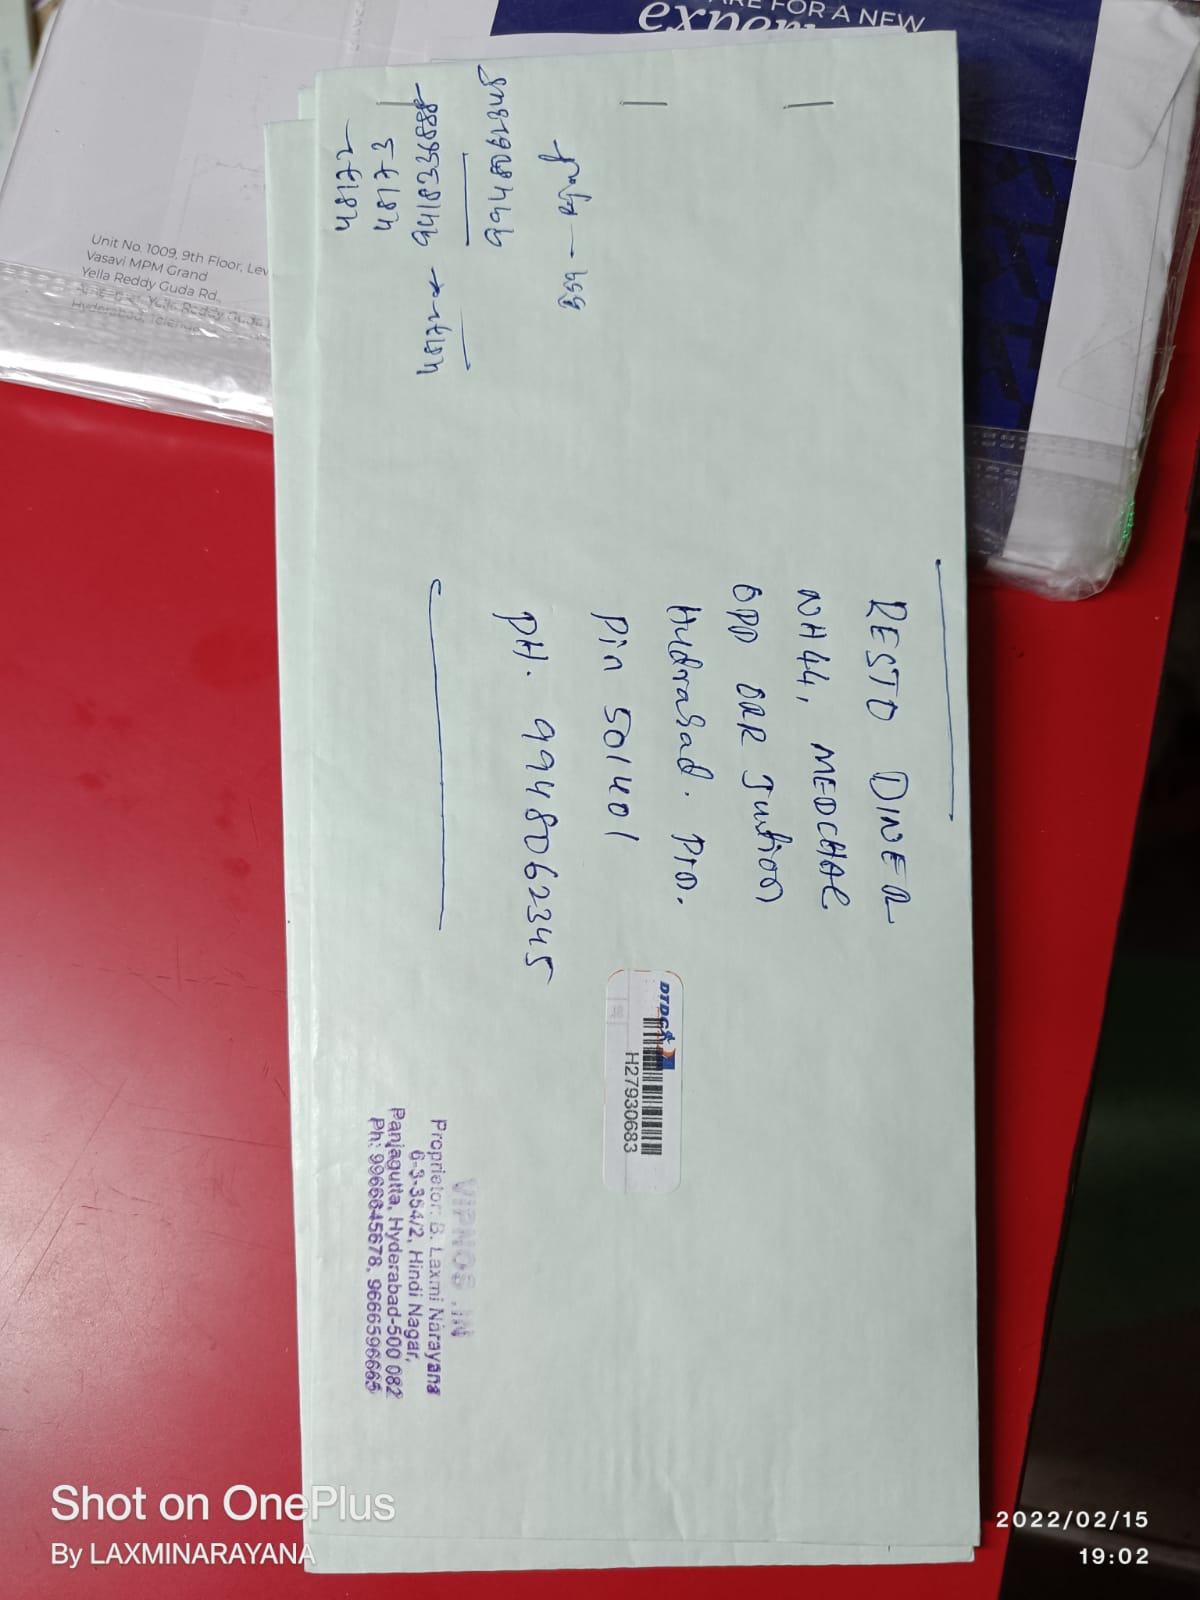 ARE FOR A NEW
Unit No. 1009, 9th Floor, Lev
Vasavi MPM Grand
Yella Reddy Guda Rd,
48172
48173
48172 9418336888
9948062345
RESTO DINER
NH44, MEDCHAL
OPP ORR Juntion
Hydrabad.
Pin 501401
PH. 9948062345
DTDC
H27930683
VIPNOS.IN
Proprietor: B. Laxmi Narayana
6-3-354/2, Hindi Nagar,
Panjagutta, Hyderabad-500 082
Ph: 9966645678, 9666596665
Shot on OnePlus
By LAXMINARAYANA
2022/02/15
19:02